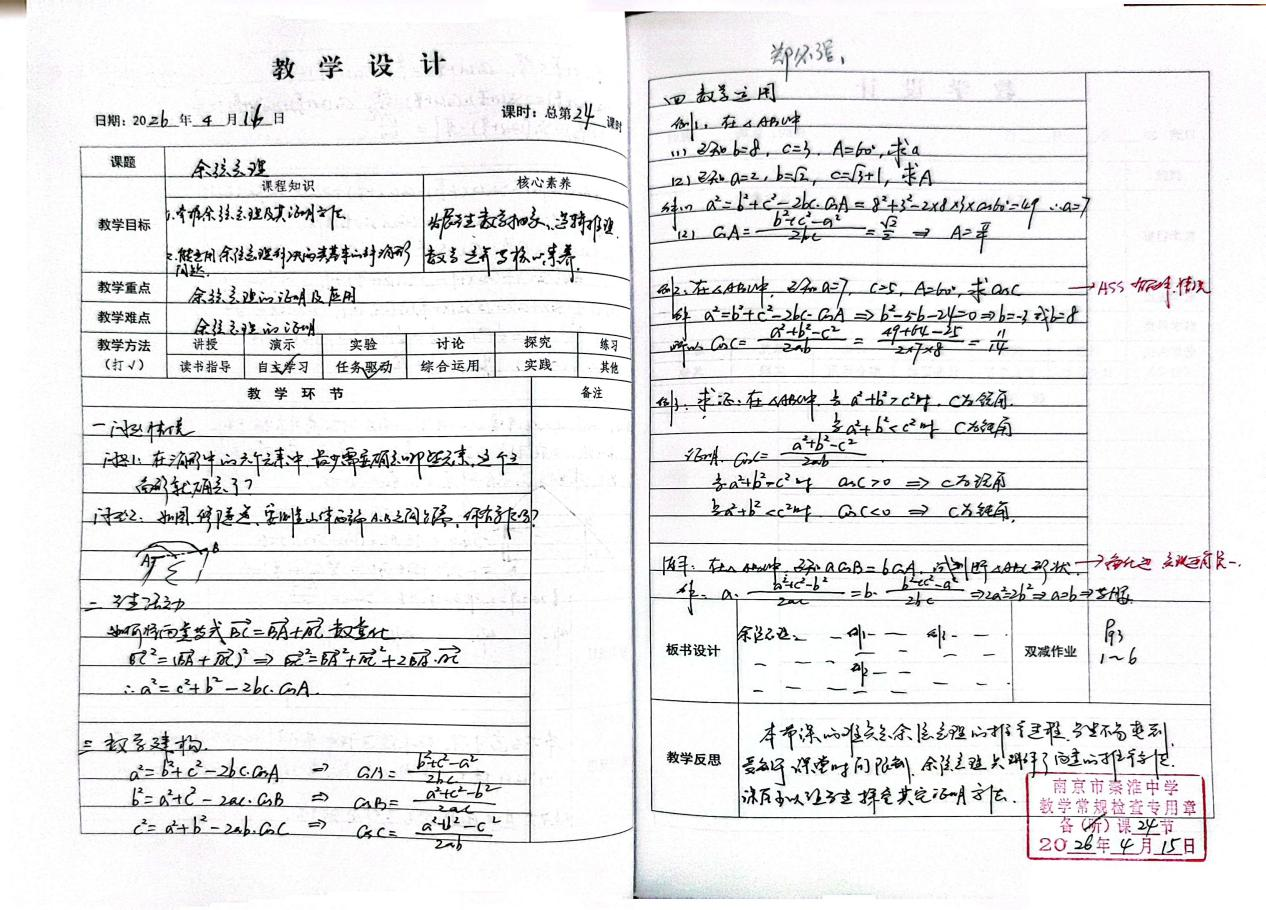 教学设计
日期：2026年4月16日
课时：总第24课时
课题
余弦定理
教学目标
课程知识
核心素养
1.掌握余弦定理及其证明方法
2.能运用余弦定理解决两类基本的解三角形问题.
发展学生数学抽象、逻辑推理
数学运算等核心素养.
教学重点
余弦定理的证明及应用
教学难点
余弦定理的证明
教学方法（打√）
讲授 演示 实验 讨论 探究 练习
读书指导 自主学习 任务驱动 综合运用 实践 其他
教学环节
备注
一 问题情境
问题1：在三角形中的六个元素中，最少需要确定哪些元素，这个三
角形就确定了？
问题2：如图，修隧道，要测量山体两端A.B之间距离，你有方法吗？
A B
二 学生活动
如何将向量等式 BC=BA+AC 数量化
BC²=(BA+AC)² ⇒ BC²=BA²+AC²+2BA·AC
∴a²=c²+b²-2bc·cosA.
三 数学建构.
a²=b²+c²-2bc·cosA ⇒ cosA= (b²+c²-a²)/2bc
b²=a²+c²-2ac·cosB ⇒ cosB= (a²+c²-b²)/2ac
c²=a²+b²-2ab·cosC ⇒ cosC= (a²+b²-c²)/2ab
四 数学运用
例1，在△ABC中
(1) 已知b=8，c=3，A=60°，求a
(2) 已知a=2，b=√2，c=√3+1，求A
解(1) a²=b²+c²-2bc·cosA=8²+3²-2×8×3×cos60°=49 ∴a=7
(2) cosA= (b²+c²-a²)/2bc =√2/2 ⇒ A=π/4
例2，在△ABC中，已知a=7，c=5，A=60°，求cosC
→ASS
解 a²=b²+c²-2bc·cosA ⇒b²-5b-24=0⇒b=-3或b=8
所以 cosC= (a²+b²-c²)/2ab = (49+64-25)/2×7×8 = 11/14
例3，求证：在△ABC中，当a²+b²>c²时，C为锐角
当a²+b²<c²时 C为钝角
证明，cosC= (a²+b²-c²)/2ab
当a²+b²>c²时 cosC>0 ⇒ C为锐角
当a²+b²<c²时，cosC<0 ⇒ C为钝角.
在△ABC中，已知acosB=bcosA，试判断△ABC形状.
解 a·(a²+c²-b²)/2ac =b·(b²+c²-a²)/2bc ⇒2a²=2b²⇒a=b⇒等腰
板书设计
余弦定理 例1 例3
例2
双减作业
P93
1~6
教学反思
本节课的难点是余弦定理的推导过程，学生不易想到，
课堂时间限制，余弦定理只讲解了向量的推导方法.
课后可以让学生探究其它证明方法.
南京市秦淮中学
教学常规检查专用章
备（听）课24节
2026年4月15日